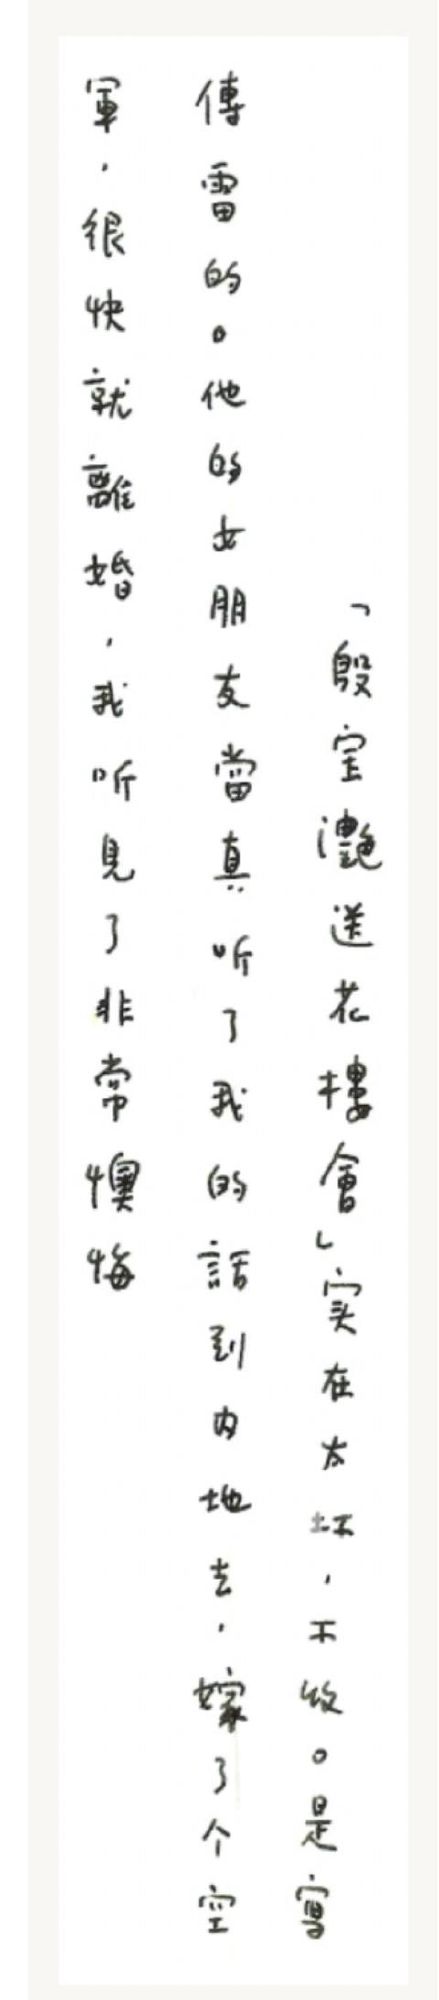 「殷宝灧送花樓會」実在太坏，不收。是寫
傅雷的。他的女朋友當真听了我的話到内地去，嫁了个空
軍，很快就離婚，我听見了非常懊悔